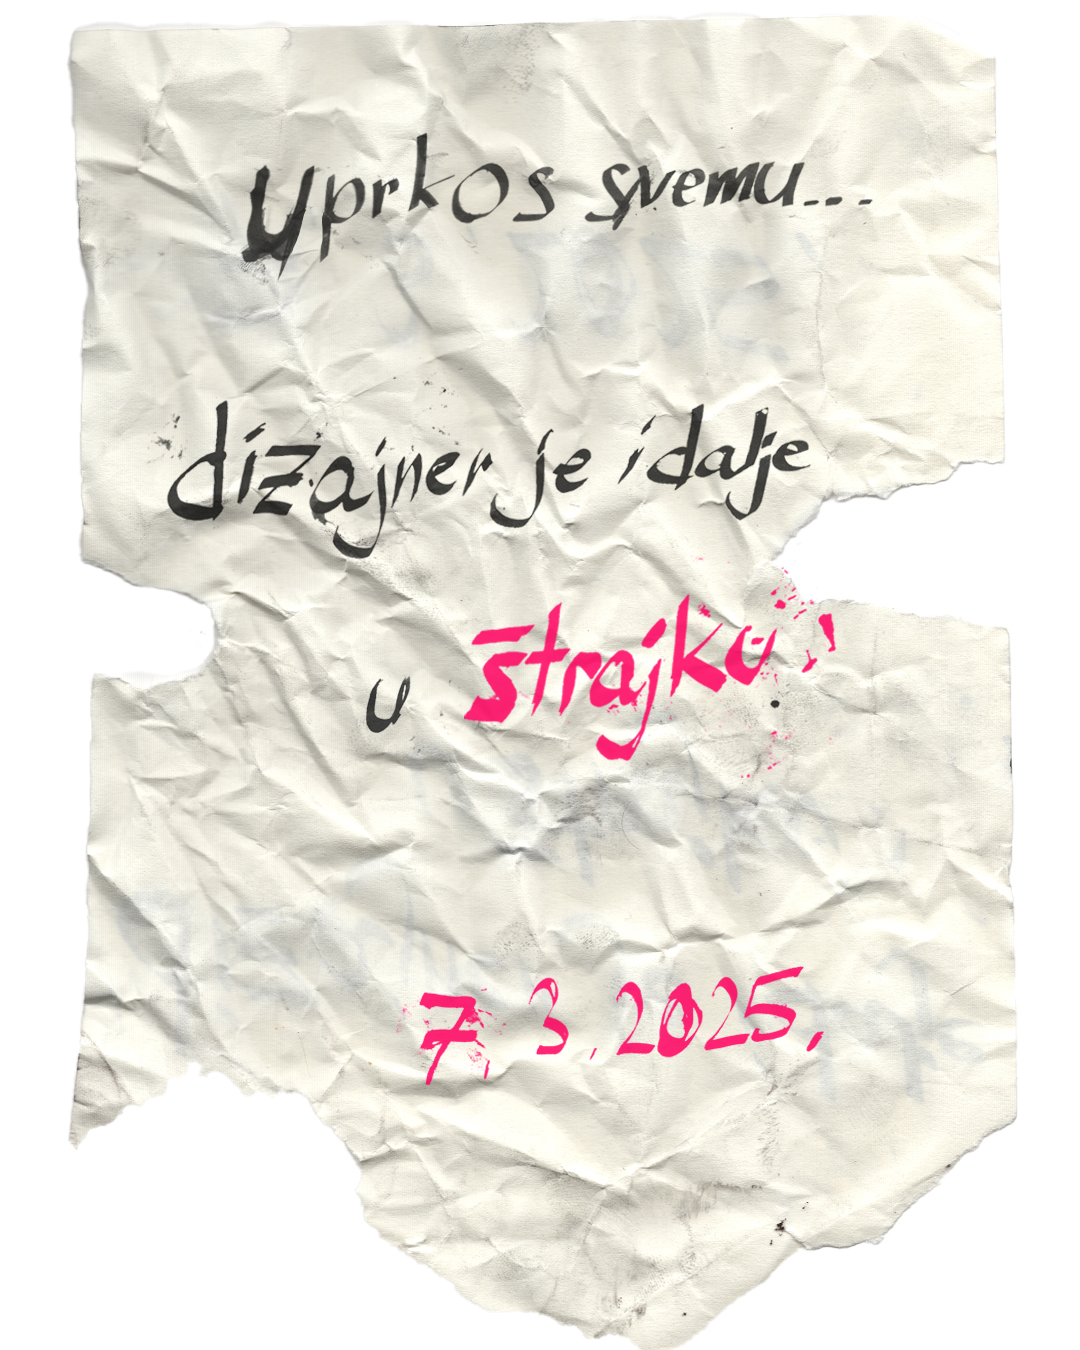 Uprkos svemu...
dizajner je idalje
u štrajku!
7. 3. 2025.